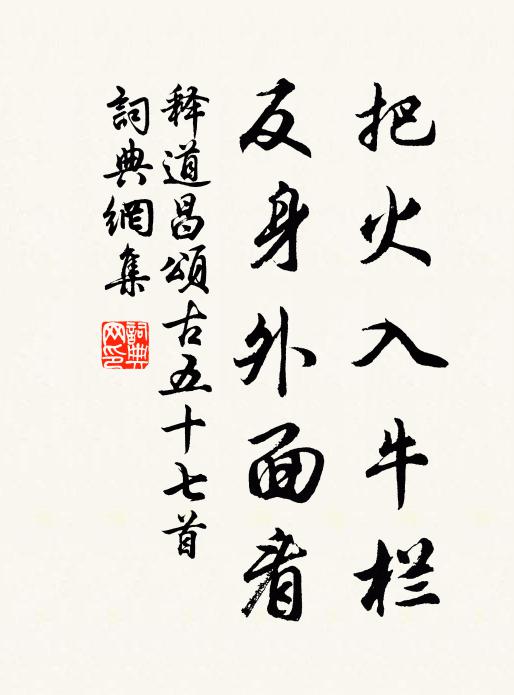 把火入牛栏
反身外面看
释道昌颂古五十七首
詞典網集
詞典网印